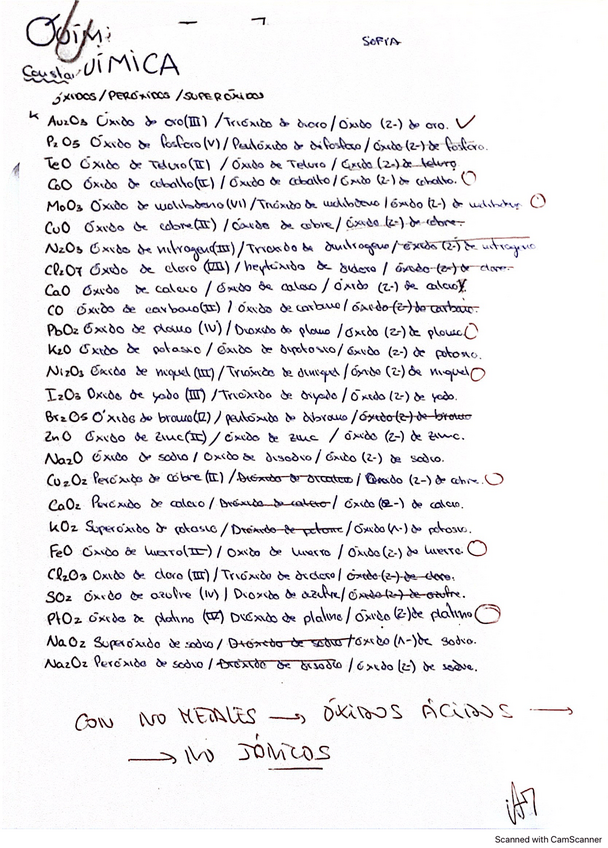 SOFIA
QUÍMICA
ÓXIDOS/PERÓXIDOS/SUPERÓXIDOS
Au2O3 Óxido de oro(III)/Trióxido de dioro/óxido (2-) de oro.
P2O5 Óxido de fosforo(V)/Pentóxido de difosforo/óxido(2-) de fosforo.
TeO Óxido de Teluro(II)/Óxido de Teluro/óxido(2-) de teluro
CoO Óxido de cobalto(II)/Óxido de cobalto/óxido(2-) de cobalto.
MoO3 Óxido de molibdeno(VI)/Trióxido de molibdeno/óxido(2-) de molibdeno
CuO Óxido de cobre(II)/óxido de cobre/óxido (2-) de cobre.
N2O3 Óxido de nitrogeno(III)/Trioxido de dinitrogeno/óxido(2-) de nitrogeno
Cl2O7 Óxido de cloro (VII)/heptóxido de dicloro/óxido(2-) de cloro.
CaO Óxido de calcio/óxido de calcio/óxido (2-) de calcio
CO Óxido de carbono(II)/óxido de carbono/óxido(2-) de carbono.
PbO2 Óxido de plomo (IV)/Dioxido de plomo/óxido(2-) de plomo
K2O Óxido de potasio/óxido de dipotasio/óxido(2-) de potasio.
Ni2O3 Óxido de niquel(III)/Trióxido de diniquel/óxido(2-) de niquel
I2O3 Oxido de yodo (III)/Trióxido de diyodo/óxido (2-) de yodo.
Br2O5 Óxido de bromo / pentóxido de dibromo/óxido(2-) de bromo
ZnO Óxido de zinc(II)/óxido de zinc / óxido (2-) de zinc.
Na2O óxido de sodio/Oxido de disodio/óxido (2-) de sodio.
Cu2O2 Peróxido de cobre (II)/Dióxido de dicobre/Óxido (2-) de cobre.
CaO2 Peróxido de calcio/Dióxido de calcio/óxido(2-) de calcio.
KO2 Superóxido de potasio/Dióxido de potasio/óxido(1-) de potasio.
FeO Óxido de hierro(II)/Oxido de hierro/óxido(2-) de hierro
Cl2O3 Oxido de cloro (III)/Trióxido de dicloro/óxido(2-) de cloro.
SO2 óxido de azufre (IV)/Dioxido de azufre/óxido(2-) de azufre.
PtO2 óxido de platino (IV) Dióxido de platino/óxido(2-) de platino
NaO2 Superóxido de sodio/Dióxido de sodio/óxido (1-) de sodio.
Na2O2 Peróxido de sodio/Dióxido de disodio/óxido (2-) de sodio.
CON NO METALES → ÓXIDOS ÁCIDOS →
→ NO IÓNICOS
Scanned with CamScanner